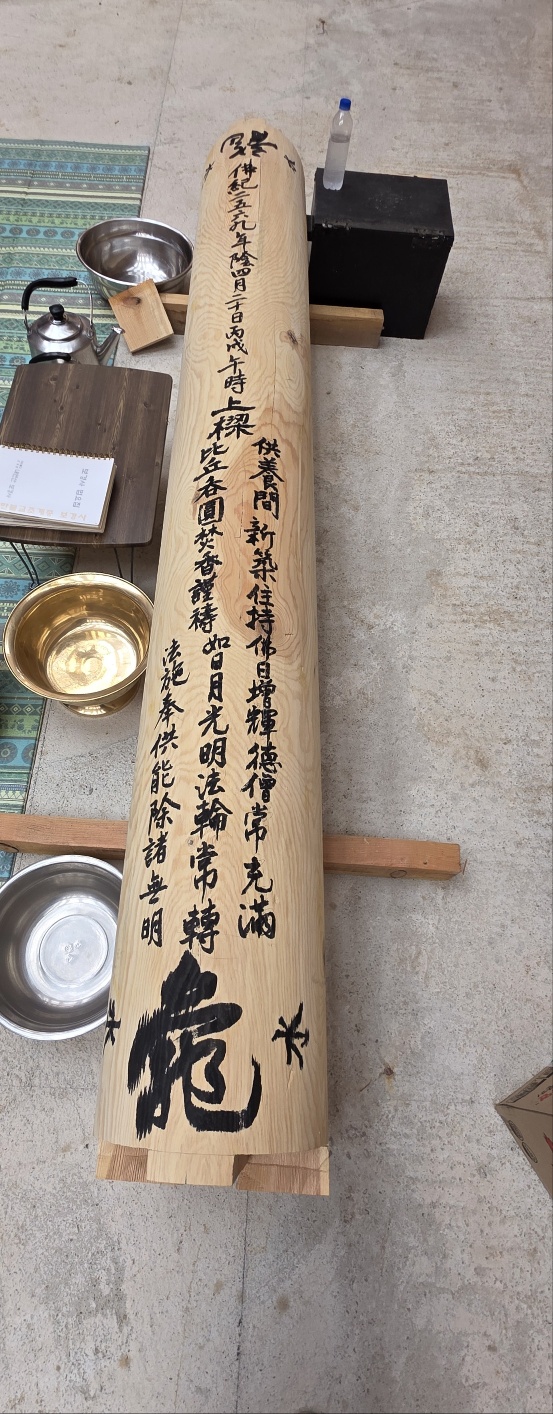 龍
水
水
佛紀二五六九年陰四月二十日丙戌午時上樑
供養間 新築住持佛日增輝德僧常充滿
比丘呑圓焚香謹禱 如日月光明法輪常轉
法施奉供能除諸無明
龜
水
水